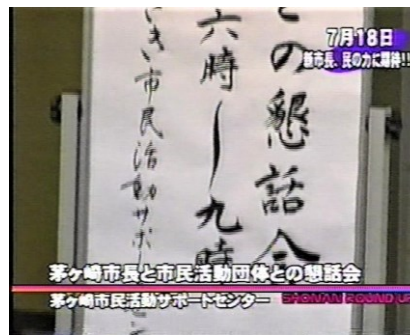 7月18日
新市長、民の力に期待!!
との懇話会
六時～九時
市民活動サポート
茅ヶ崎市長と市民活動団体との懇話会
茅ヶ崎市民活動サポートセンター SHONAN ROUND UP